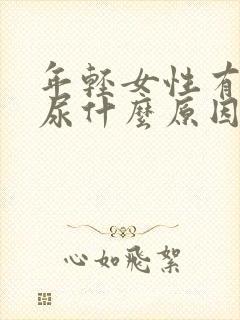 年輕女性有
尿什麼原因
心如飛絮